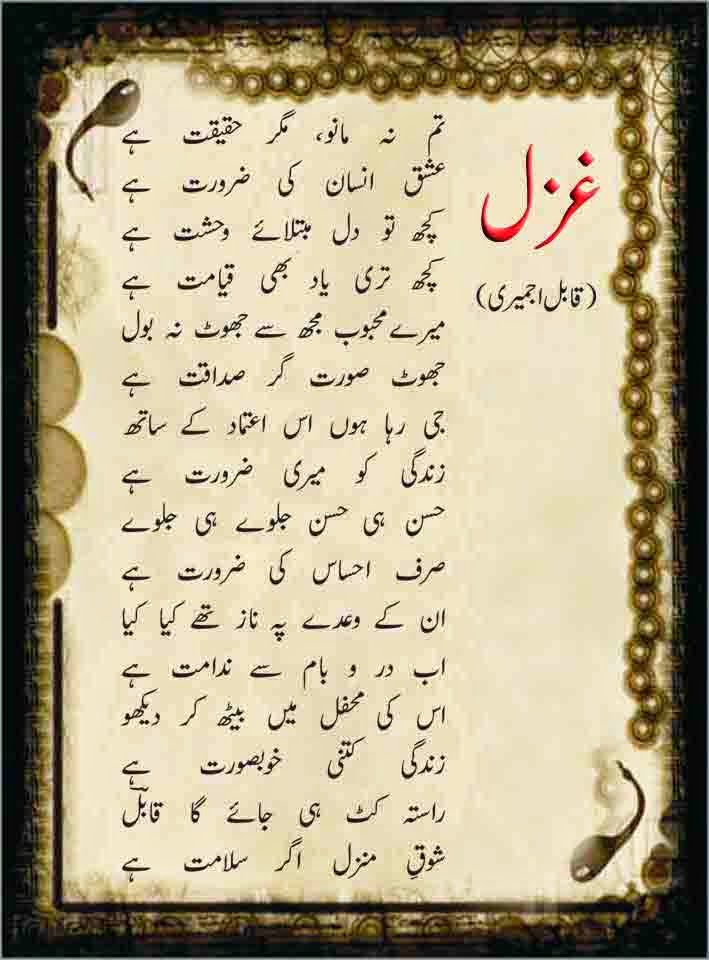 غزل
(قابل اجمیری)
تم نہ مانو، مگر حقیقت ہے
عشق انسان کی ضرورت ہے
کچھ تو دل مبتلائے وحشت ہے
کچھ تری یاد بھی قیامت ہے
میرے محبوب مجھ سے جھوٹ نہ بول
جھوٹ صورت گر صداقت ہے
جی رہا ہوں اس اعتماد کے ساتھ
زندگی کو میری ضرورت ہے
حسن ہی حسن جلوے ہی جلوے
صرف احساس کی ضرورت ہے
ان کے وعدے پہ ناز تھے کیا کیا
اب در و بام سے ندامت ہے
اس کی محفل میں بیٹھ کر دیکھو
زندگی کتنی خوبصورت ہے
راستہ کٹ ہی جائے گا قابلؔ
شوقِ منزل اگر سلامت ہے